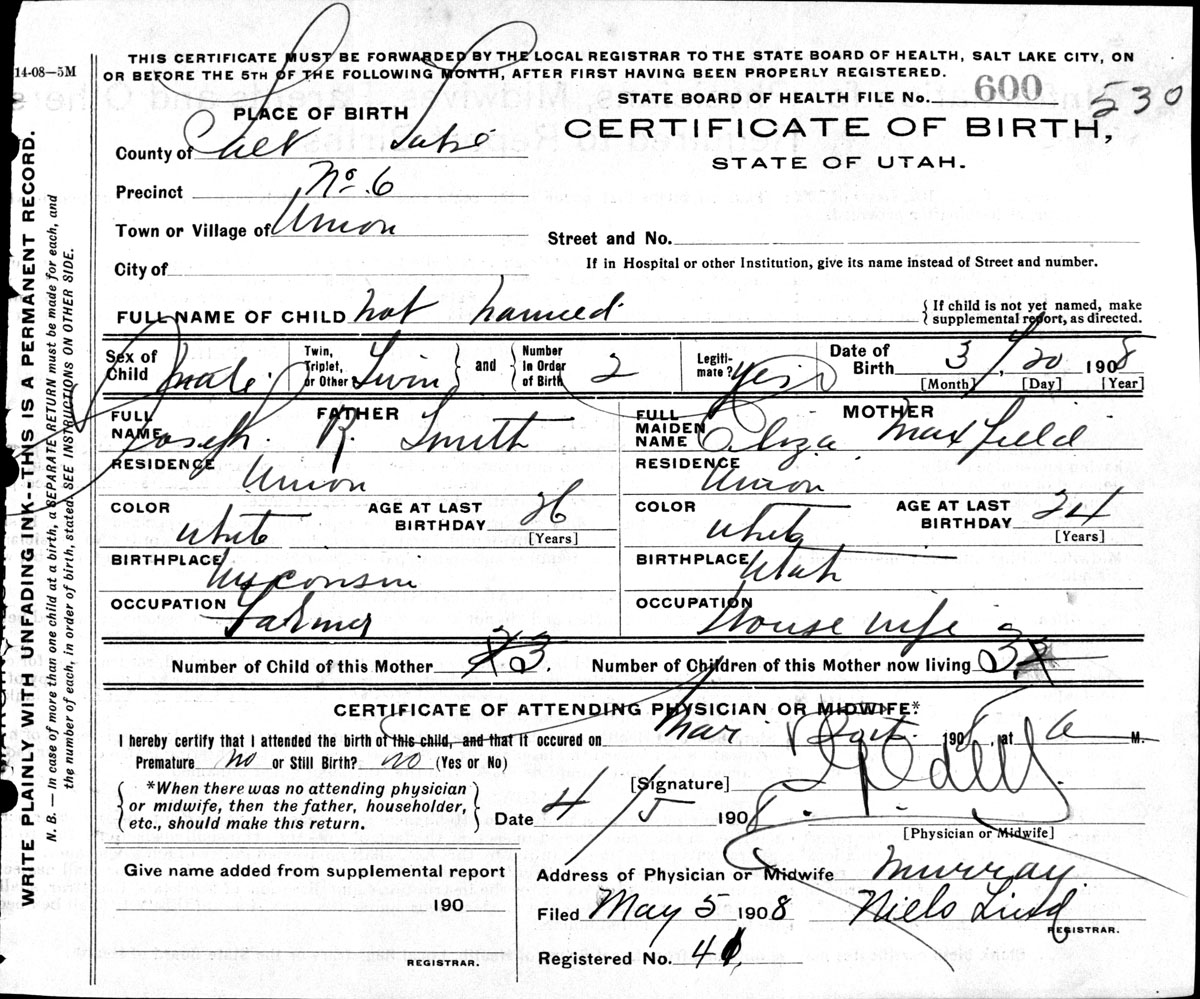 14-08—5M
THIS CERTIFICATE MUST BE FORWARDED BY THE LOCAL REGISTRAR TO THE STATE BOARD OF HEALTH, SALT LAKE CITY, ON
OR BEFORE THE 5TH OF THE FOLLOWING MONTH, AFTER FIRST HAVING BEEN PROPERLY REGISTERED.
STATE BOARD OF HEALTH FILE No. 600
230
PLACE OF BIRTH
CERTIFICATE OF BIRTH,
STATE OF UTAH.
County of Salt Lake
Precinct No. 6
Town or Village of Union
Street and No.
City of
If in Hospital or other Institution, give its name instead of Street and number.
FULL NAME OF CHILD not named
{ If child is not yet named, make
supplemental report, as directed.
Sex of Child male. Twin, Triplet, or Other? Twin and Number In Order of Birth 2 Legiti-mate? yes Date of Birth 3 [Month], 20 [Day] 1908 [Year]
FATHER
FULL NAME Joseph R. Smith
RESIDENCE Union
COLOR White AGE AT LAST BIRTHDAY 26 [Years]
BIRTHPLACE Wisconsin
OCCUPATION Farmer
MOTHER
FULL MAIDEN NAME Eliza Maxfield
RESIDENCE Union
COLOR White AGE AT LAST BIRTHDAY 24 [Years]
BIRTHPLACE Utah
OCCUPATION House wife
Number of Child of this Mother 3. Number of Children of this Mother now living 3
CERTIFICATE OF ATTENDING PHYSICIAN OR MIDWIFE.*
I hereby certify that I attended the birth of this child, and that it occured on Mar 1908, at 6 M.
Premature no or Still Birth? no (Yes or No)
*When there was no attending physician
or midwife, then the father, householder,
etc., should make this return.
[Signature]
Date 4/5 1908.
[Physician or Midwife]
Give name added from supplemental report
190
REGISTRAR.
Address of Physician or Midwife Murray
Filed May 5 1908 Niels Lind
REGISTRAR.
Registered No. 41
WRITE PLAINLY WITH UNFADING INK---THIS IS A PERMANENT RECORD.
N. B. — In case of more than one child at a birth, a SEPARATE RETURN must be made for each, and
the number of each, in order of birth, stated. SEE INSTRUCTIONS ON OTHER SIDE.